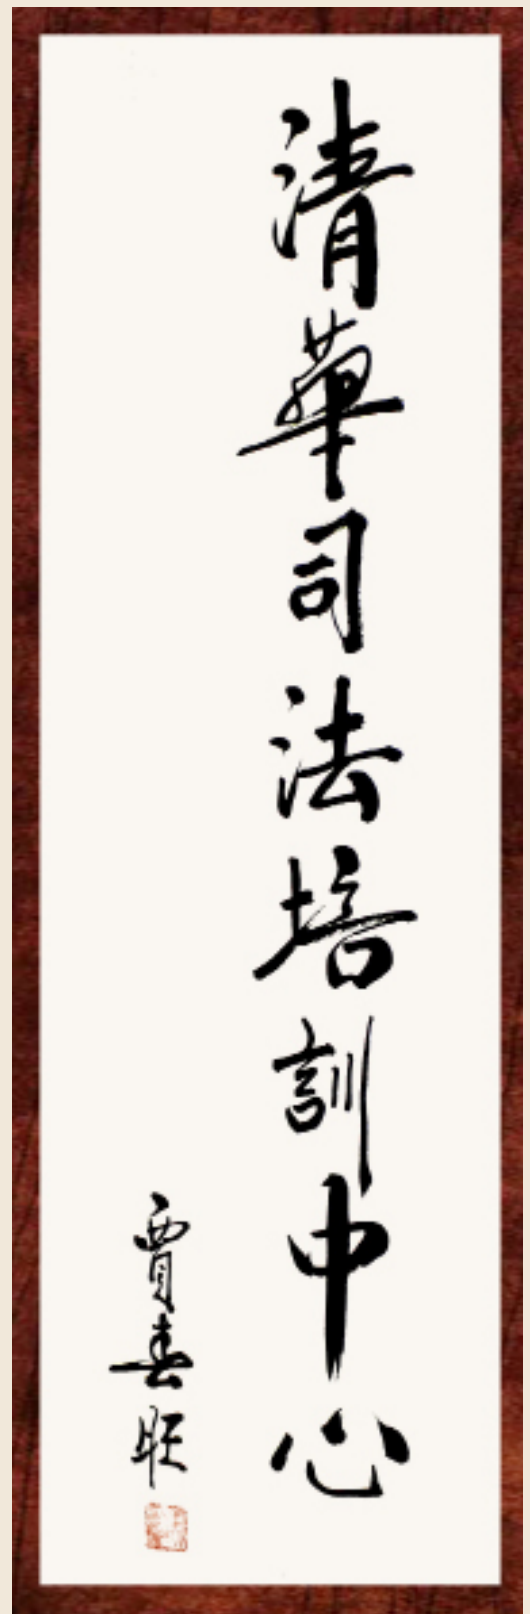 清華司法培訓中心
賈春旺